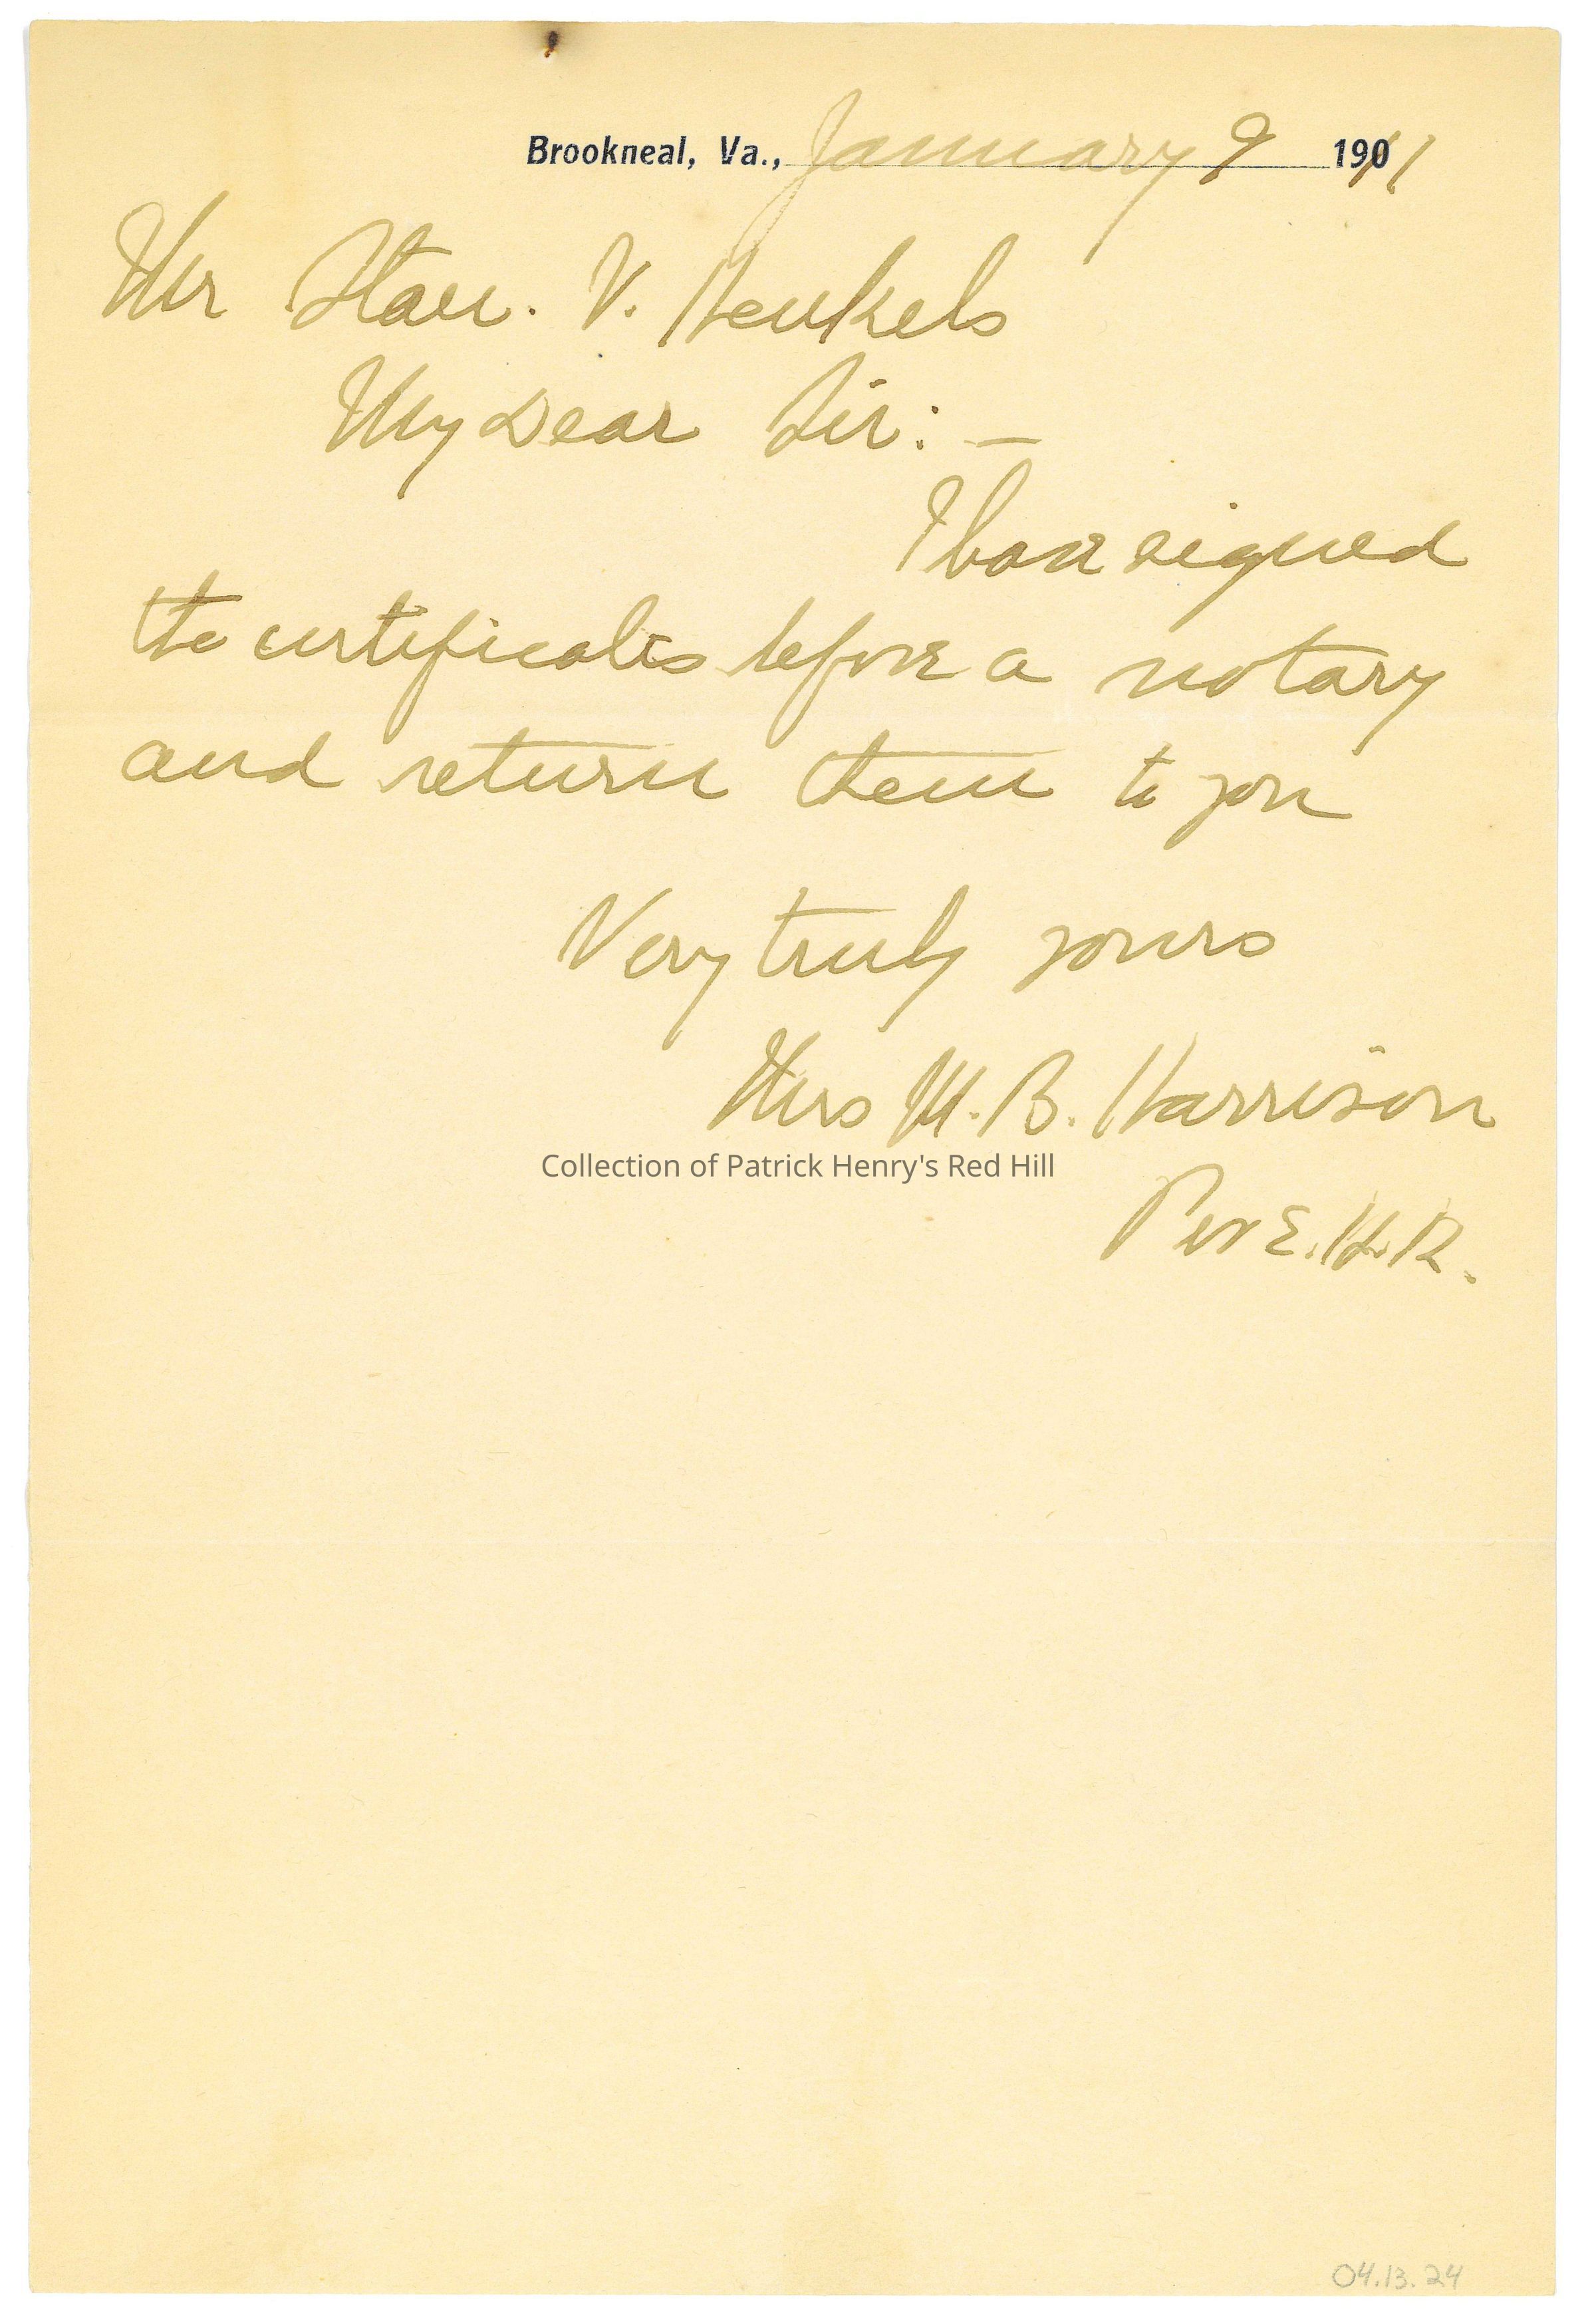 Brookneal, Va., January 9 1911
Mr Stan. V. Henkels
My Dear Sir: —
I have signed
the certificates before a notary
and return them to you
Very truly yours
Mrs M. B. Harrison
Collection of Patrick Henry's Red Hill
Per E. H. R.
04.13.24